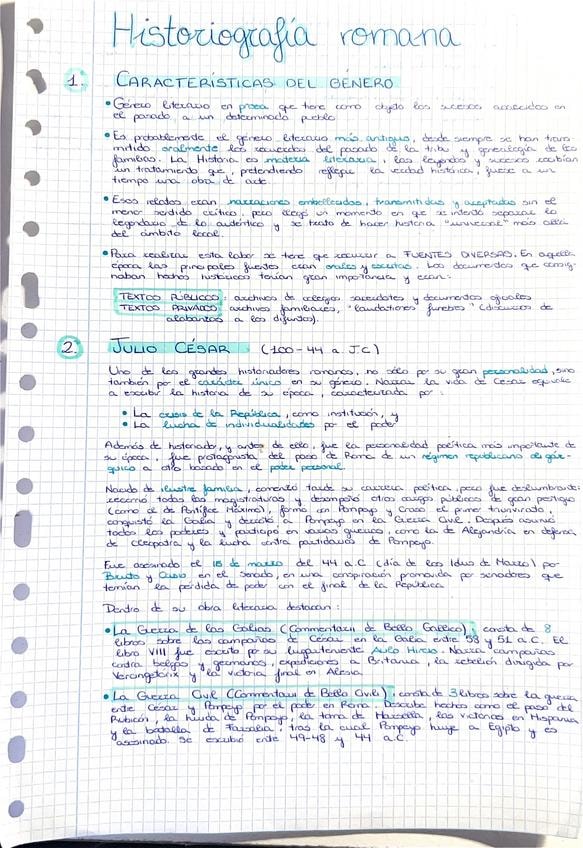 Historiografía romana
1. CARACTERÍSTICAS DEL GÉNERO
• Género literario en prosa que tiene como objeto los sucesos acaecidos en
el pasado a un determinado pueblo
• Es probablemente el género literario más antiguo, desde siempre se han trans
mitido oralmente los recuerdos del pasado de la tribu y genealogía de las
familias. La Historia es materia literaria, las leyendas y sucesos recibían
un tratamiento que, pretendiendo reflejar la verdad histórica, fuese a un
tiempo una obra de arte.
• Esos relatos eran narraciones embellecidas, transmitidas y aceptadas sin el
menor sentido crítico, pero llegó un momento en que se intentó separar lo
legendario de lo auténtico y se trató de hacer historia "universal" más allá
del ámbito local.
• Para realizar esta labor se tiene que recurrir a FUENTES DIVERSAS. En aquella
época las principales fuentes eran orales y escritas. Los documentos que consig-
naban hechos históricos tenían gran importancia y eran:
TEXTOS PÚBLICOS: archivos de colegios sacerdotes y documentos oficiales
TEXTOS PRIVADOS: archivos familiares, "laudationes funebres" (discursos de
alabanzas a los difuntos).
2. JULIO CÉSAR (100-44 a.J.C)
Uno de los grandes historiadores romanos, no sólo por su gran personalidad, sino
también por el carácter único en su género. Narrar la vida de César equivale
a escribir la historia de su época, caracterizada por:
• La crisis de la República, como institución, y
• La lucha de individualidades por el poder
Además de historiador, y antes de ello, fue la personalidad política más importante de
su época, fue protagonista del paso de Roma de un régimen republicano oligár-
quico a otro basado en el poder personal.
Nacido de ilustre familia, comenzó tarde su carrera política, pero fue deslumbrante:
recorrió todas las magistraturas y desempeñó otros cargos públicos de gran prestigio
(como el de Pontífice Máximo), formó con Pompeyo y Craso el primer triunvirato,
conquistó la Galia y derrotó a Pompeyo en la Guerra Civil. Después asumió
todos los poderes y participó en varias guerras, como la de Alejandría en defensa
de Cleopatra y la lucha contra partidarios de Pompeyo.
Fue asesinado el 15 de marzo del 44 a.C (día de los Idus de Marzo) por
Bruto y Casio en el senado, en una conspiración promovida por senadores que
temían la pérdida de poder con el final de la República
Dentro de su obra literaria destacan:
• La Guerra de las Galias (Commentarii de Bello Gallico): consta de 8
libros sobre las campañas de César en la Galia entre 58 y 51 a.C. El
libro VIII fue escrito por su lugarteniente Aulo Hircio. Narra campañas
contra belgas y germanos, expediciones a Britania, la rebelión dirigida por
Vercingetórix y la victoria final en Alesia.
• La Guerra Civil (Commentarii de Bello Civili), consta de 3 libros sobre la guerra
entre César y Pompeyo por el poder en Roma. Describe hechos como el paso del
Rubicón, la huida de Pompeyo, la toma de Marsella, las victorias en Hispania
y la batalla de Farsalia, tras la cual Pompeyo huye a Egipto y es
asesinado. Se escribió entre 49-48 y 44 a.C.